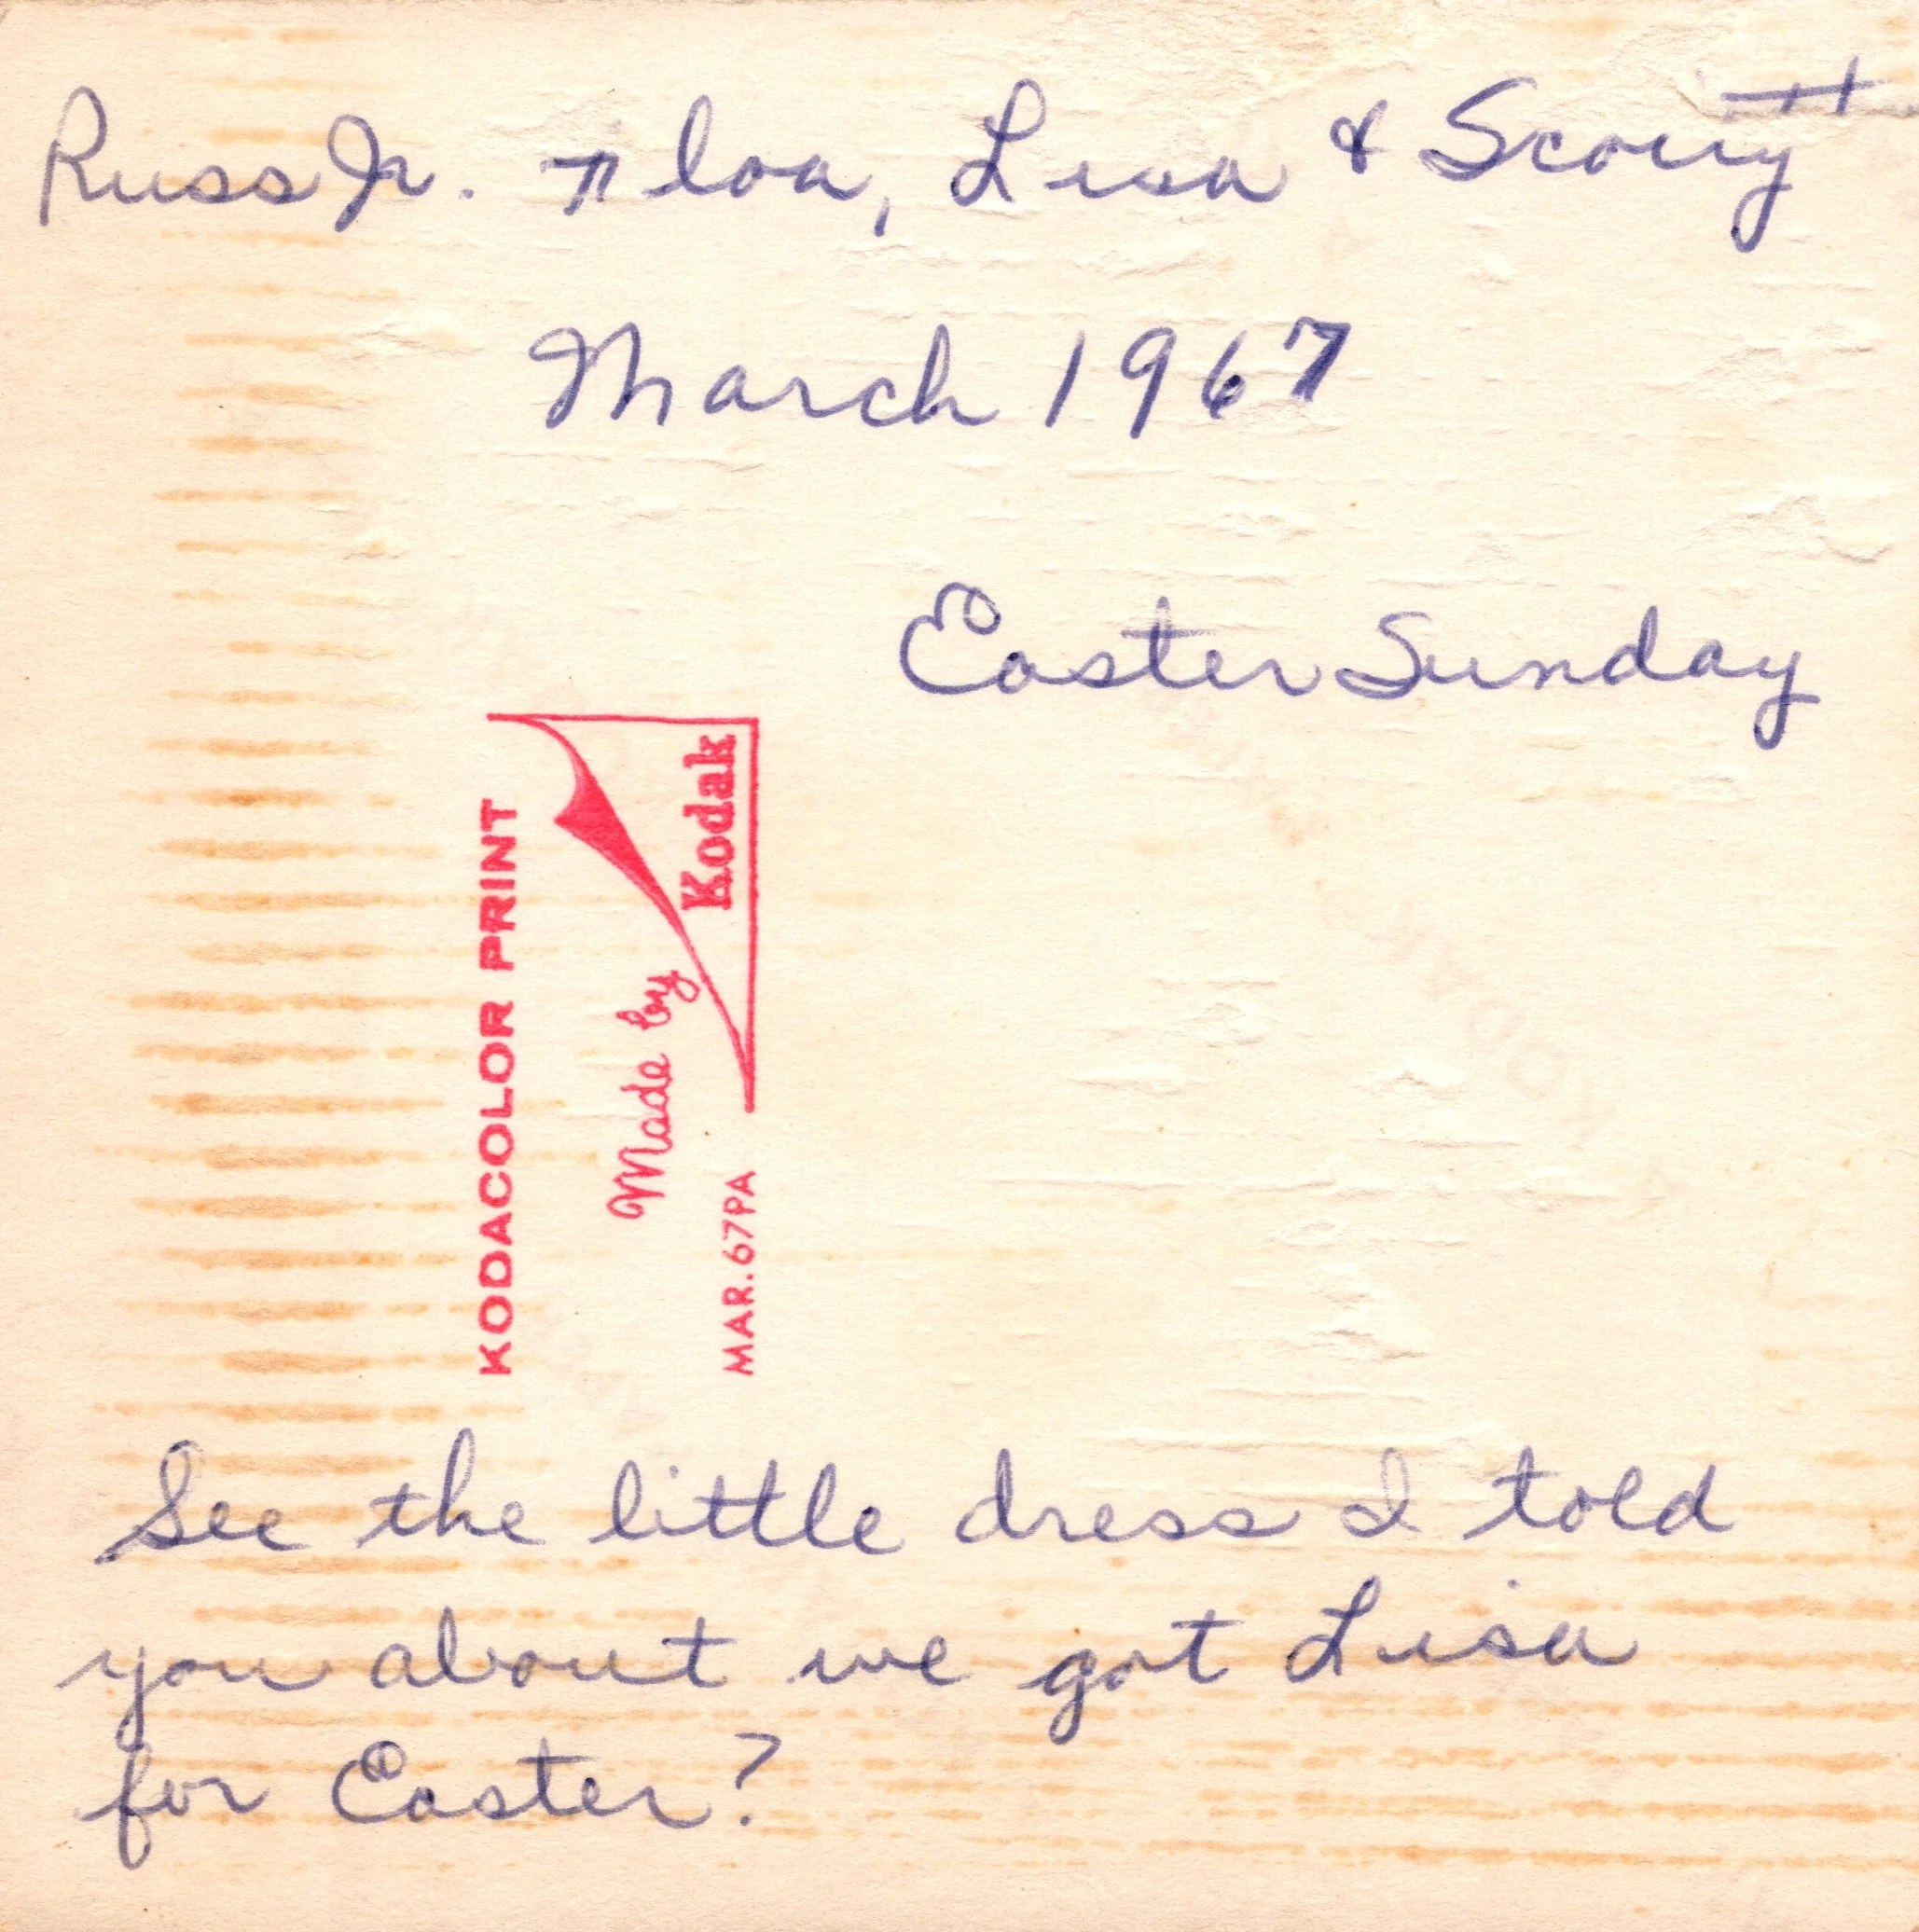 Russ Jr. Lisa & Scotty
March 1967
Easter Sunday
KODACOLOR PRINT
Made by
Kodak
MAR. 67PA
See the little dress I told
you about we got Lisa
for Easter?